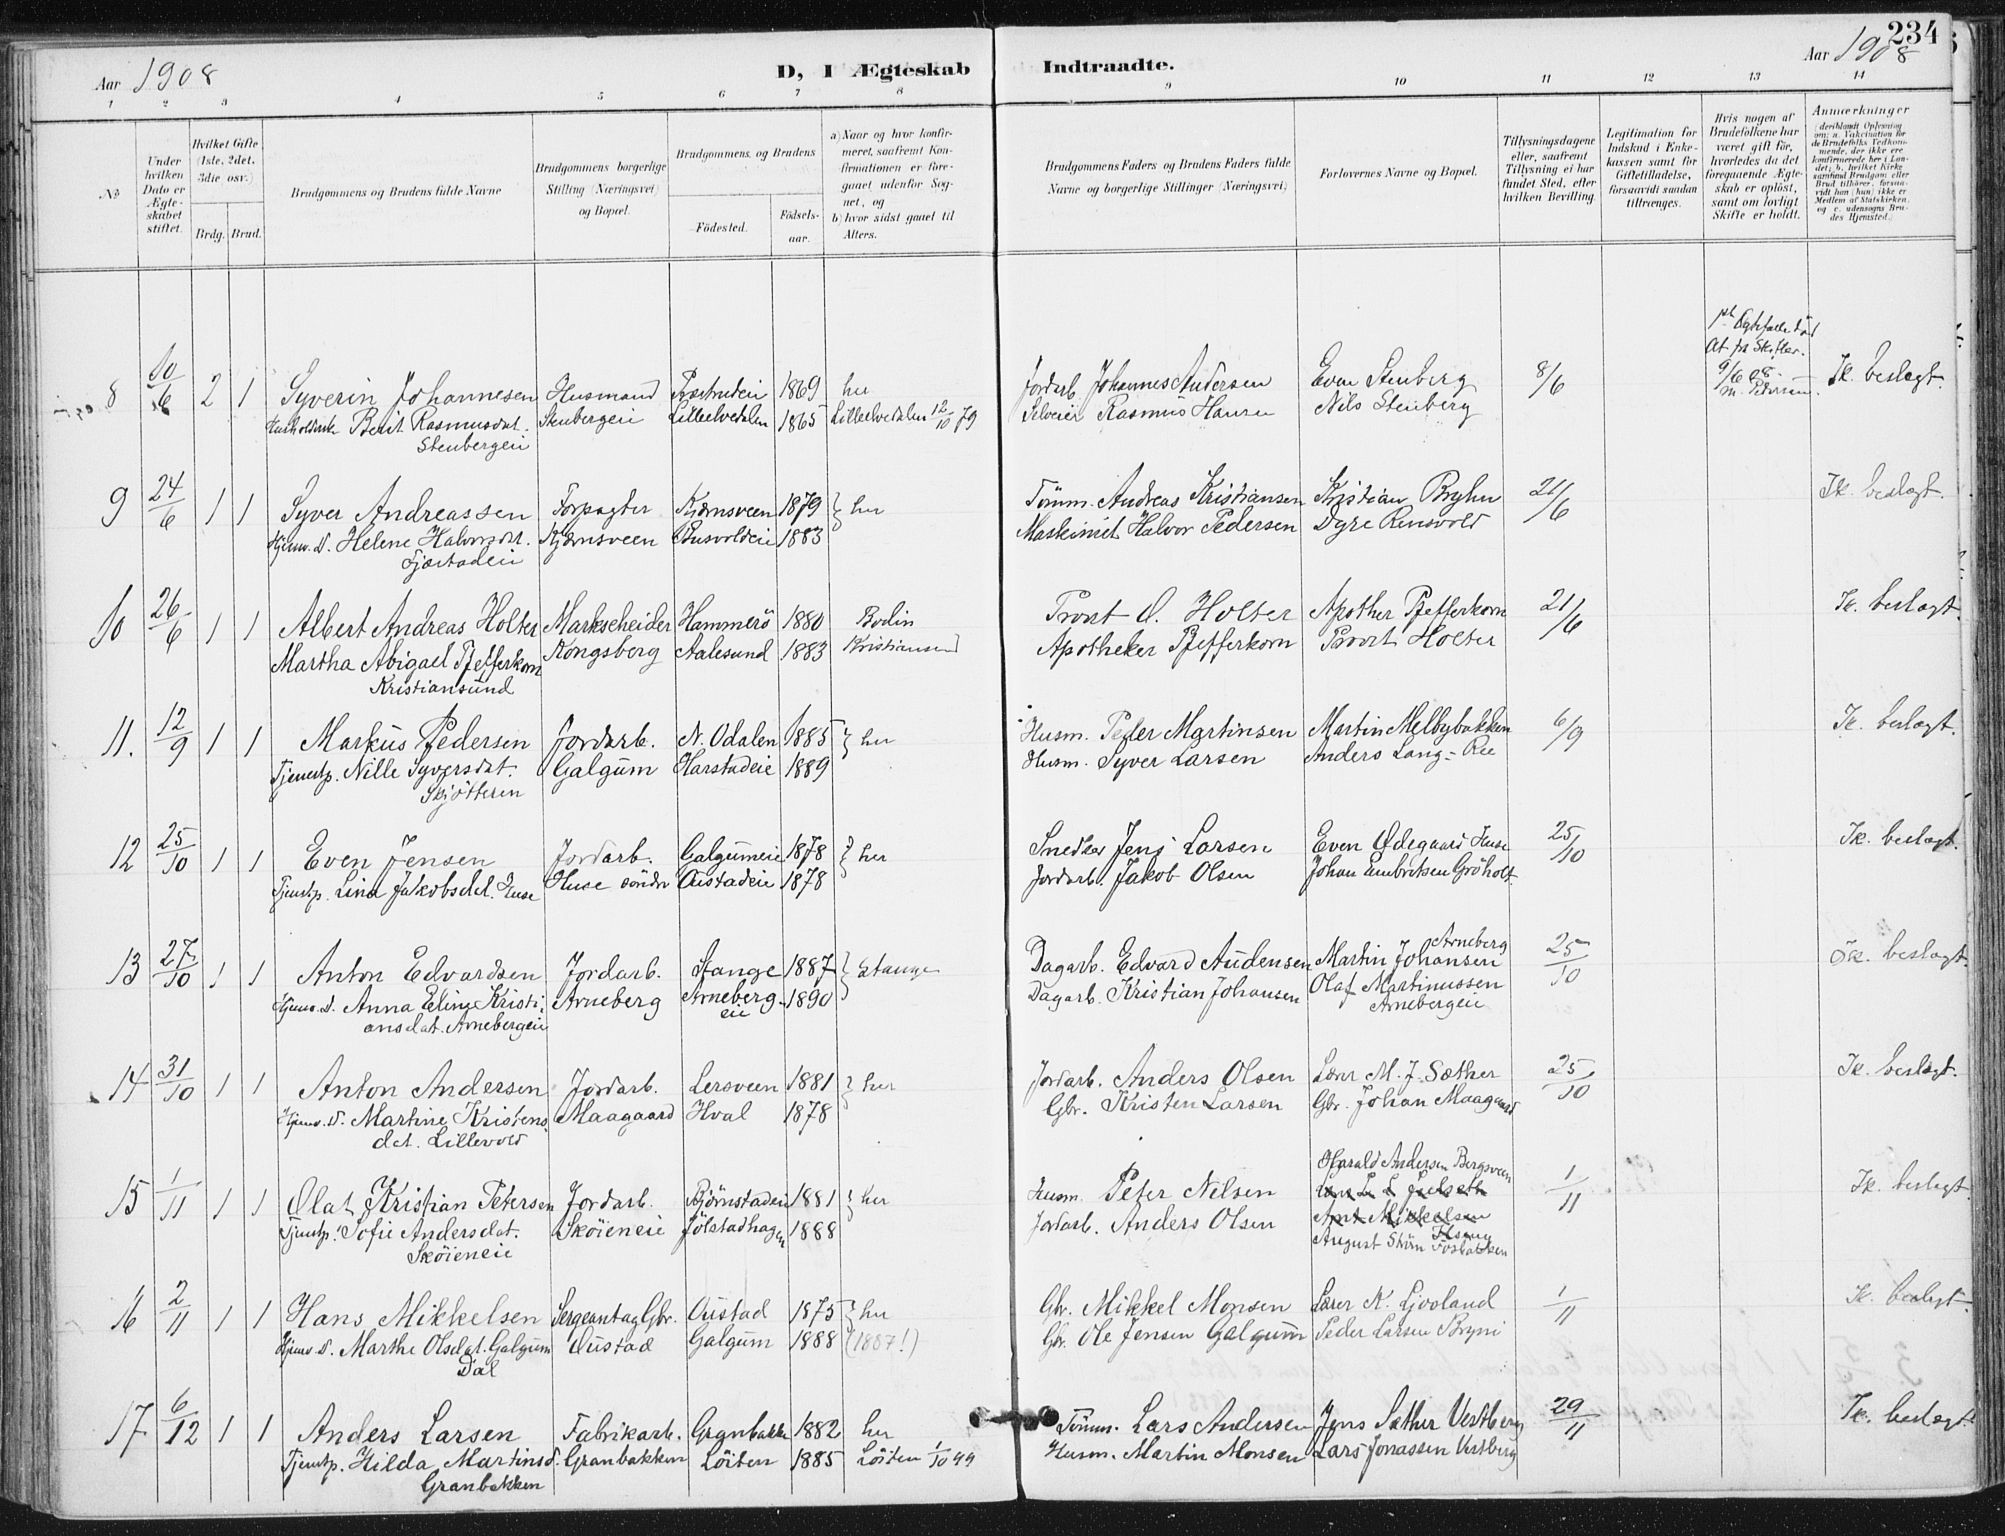 234
Aar 1908
D, I Ægteskab Indtraadte.
Aar 1908
1 2 3 4 5 6 7 8 9 10 11 12 13 14
No
Under hvilken Dato er Ægteskabet stiftet.
Hvilket Gifte (1ste, 2det, 3die osv.)
Brdg. Brud.
Brudgommens og Brudens fulde Navne
Brudgommens borgerlige Stilling (Næringsvei) og Bopæl.
Brudgommens og Brudens
Födested. Födselsaar.
a) Naar og hvor konfirmeret, saafremt Konfirmationen er foregaaet udenfor Sognet, og
b) hvor sidst gaaet til Alters.
Brudgommens Faders og Brudens Faders fulde Navne og borgerlige Stillinger (Næringsvei)
Forlovernes Navne og Bopæl.
Tillysningsdagene eller, saafremt Tillysning ei har fundet Sted, efter hvilken Bevilling.
Legitimation for Indskud i Enkekassen samt for Giftetilladelse, forsaavidt saadan tiltrænges.
Hvis nogen af Brudefolkene har været gift før, hvorledes da det foregaaende Ægteskab er opløst, samt om lovligt Skifte er holdt.
Anmærkninger
8 10/6 2 1 Syverin Johannesen Husmand 1869 her Jordarb. Johannes Andersen Even Stenberg 8/6 Ik. beslegt.
Berit Rasmusdat. Stenbergeie Lilleelvedalen 1865 Lilleelvedalen 12/10 79 Selveier Rasmus Hansen Nils Stenberg 9/6 08
Stenbergeie
9 24/6 1 1 Syver Andreassen Forpagter Kjernsveen 1879 } her Tömm. Andreas Kristiansen Kristian Bryhn 21/6 Ik. beslegt.
Hjemv. D. Helene Halvorsdat. Kjernsveen 1883 Maskinist Halvor Pedersen Dyre Rensvold
10 26/6 1 1 Albert Andreas Holter Markscheider Hammerö 1880 Bodin Provst O. Holter Apother Pfefferkorn 21/6 Ik. beslegt.
Martha Abigael Pfefferkorn Kongsberg Aalesund 1883 Kristiansund Apotheker Pfefferkorn Provst Holter
Kristiansund
11. 12/9 1 1 Markus Pedersen Jordarb. N. Odalen 1885 } her Husm. Peder Martinsen Martin Melbybakken 6/9 Ik. beslegt.
Tjenestp. Nille Syversdat. Galgum Harstadeie 1889 Husm. Syver Larsen Anders Lang-Ree
Skjötteren
12 25/10 1 1 Even Jensen Jordarb. Galgumeie 1878 } her Snedker Jens Larsen Even Ødegaard Huse 25/10 Ik. beslegt.
Tjenestp. Lina Jakobsdat. Huse Huse söndre Oustadeie 1878 Jordarb. Jakob Olsen Johan Embretsen Gröholt
13 27/10 1 1 Anton Edvardsen Jordarb. Stange 1887 } Stange Dagarb. Edvard Audensen Martin Johansen Arneberg 25/10 Ik. beslegt.
Hjemv. D. Anna Eline Kristi- Arneberg Arneberg-eie 1890 Dagarb. Kristian Johansen Olaf Martinussen
ansdat. Arnebergeie Arnebergeie
14 31/10 1 1 Anton Andersen Jordarb. Lersveen 1881 } her Jordarb. Anders Olsen Lærer M. J. Sæther 25/10 Ik. beslegt.
Hjemv. D. Martine Kristens- Maagaard Hval 1878 Gbr. Kristen Larsen Gbr. Johan Maagaard
dat. Lillevold
15 1/11 1 1 Olaf Kristian Petersen Jordarb. Björnstadeie 1881 } her Husm. Peter Nilsen Harald Andersen Bergsveen 1/11 Ik. beslegt.
Tjenestp. Sofie Andersdat. Sköieneie Jölstadhagen 1888 Jordarb. Anders Olsen
Sköieneie August
16 2/11 1 1 Hans Mikkelsen Sergeant og Gbr. Oustad 1875 } her Gbr. Mikkel Monsen Lærer K. Ljooland 1/11 Ik. beslegt.
Hjemv. D. Marthe Olsdat. Galgum Oustad Galgum 1888 (1887!) Gbr. Ole Jensen Galgum Peder Larsen Bryni
Dal
17 6/12 1 1 Anders Larsen Fabrikarb. Granbakken 1882 her Tömm. Lars Andersen Jens Sæther Vestberg 29/11 Ik. beslegt.
Tjenestp. Hilda Martinsd. Granbakken Löiten 1885 Löiten 1/10 99 Husm. Martin Monsen Lars Jonassen Vestberg
Granbakken